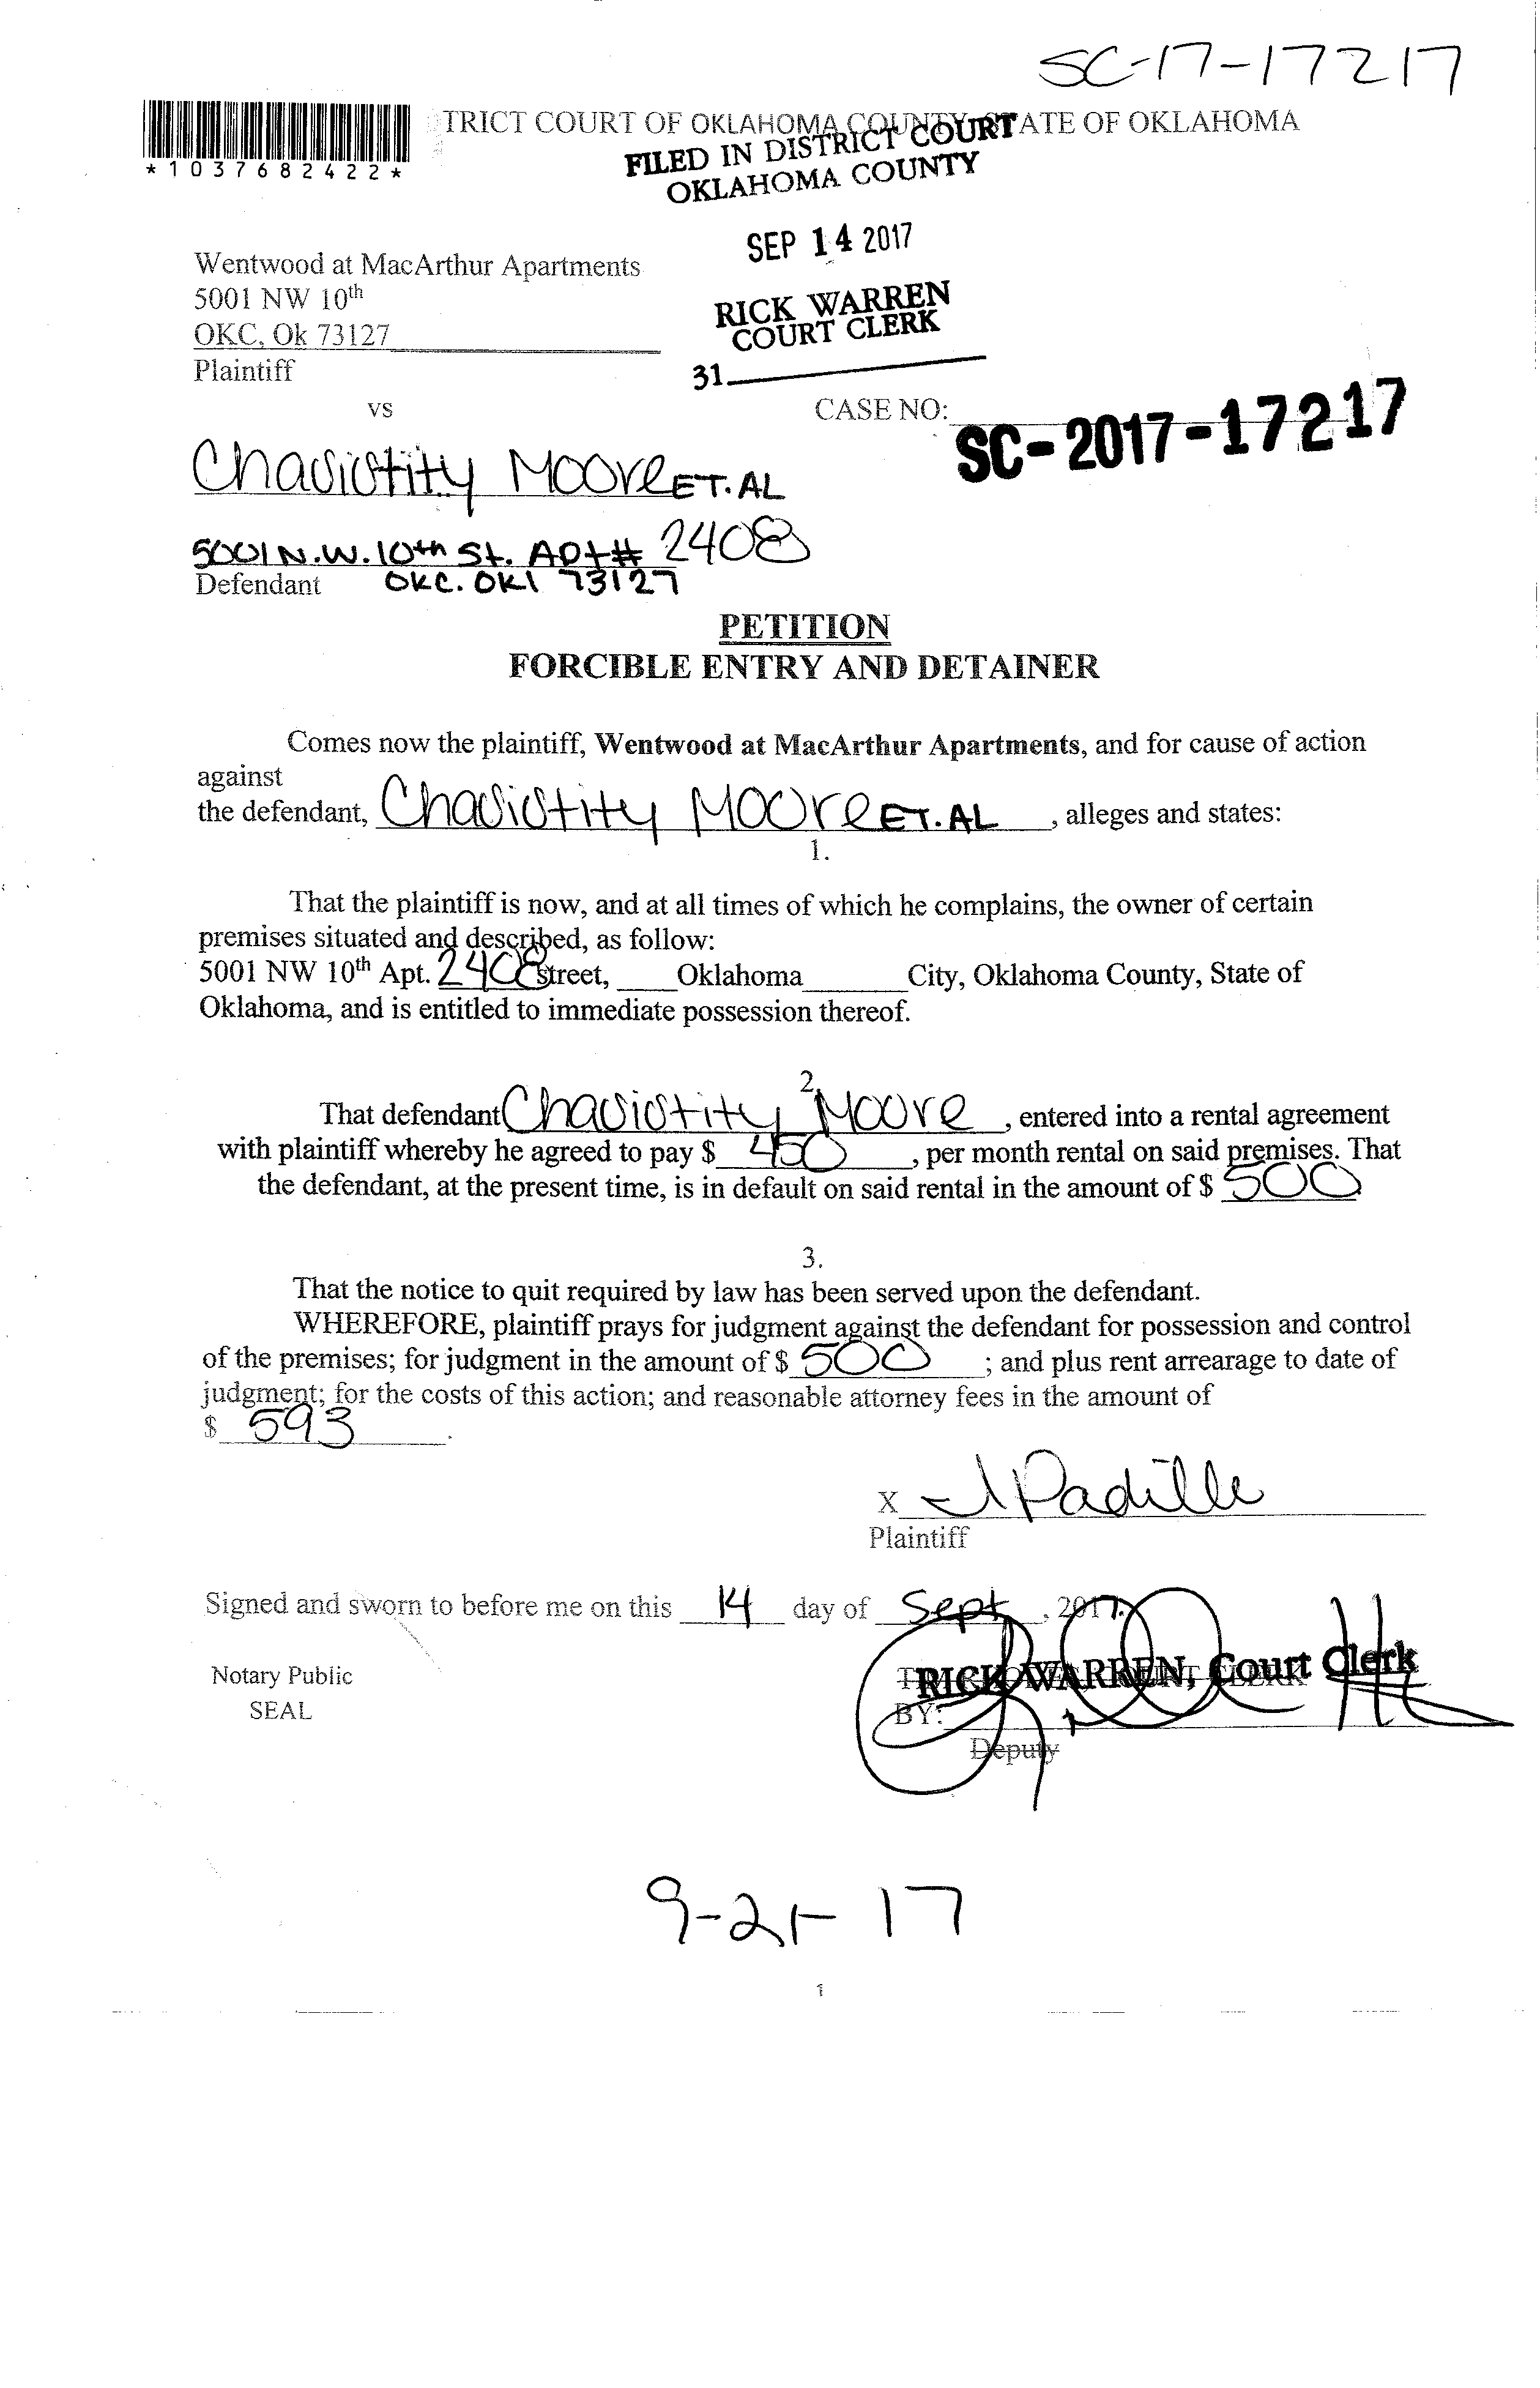 SC-17-17217
TRICT COURT OF OKLAHOMA COUNTY STATE OF OKLAHOMA
*1037682422*
FILED IN DISTRICT COURT
OKLAHOMA COUNTY
SEP 14 2017
RICK WARREN
COURT CLERK
31
Wentwood at MacArthur Apartments
5001 NW 10th
OKC, Ok 73127
Plaintiff
vs
CASE NO:
SC-2017-17217
Moore ET. AL
5001 N.W. 10th St. Apt# 2408
Defendant OKC. OKl 73127
PETITION
FORCIBLE ENTRY AND DETAINER
Comes now the plaintiff, Wentwood at MacArthur Apartments, and for cause of action
against
the defendant, Moore ET. AL , alleges and states:
1.
That the plaintiff is now, and at all times of which he complains, the owner of certain
premises situated and described, as follow:
5001 NW 10th Apt. 2408 Street, Oklahoma City, Oklahoma County, State of
Oklahoma, and is entitled to immediate possession thereof.
2.
That defendant Moore , entered into a rental agreement
with plaintiff whereby he agreed to pay $ 450 , per month rental on said premises. That
the defendant, at the present time, is in default on said rental in the amount of $ 500
3.
That the notice to quit required by law has been served upon the defendant.
WHEREFORE, plaintiff prays for judgment against the defendant for possession and control
of the premises; for judgment in the amount of $ 500 ; and plus rent arrearage to date of
judgment; for the costs of this action; and reasonable attorney fees in the amount of
$ 593 .
X
Plaintiff
Signed and sworn to before me on this 14 day of Sept , 2017.
Notary Public
SEAL
RICK WARREN, Court Clerk
BY:
Deputy
9-21-17
1